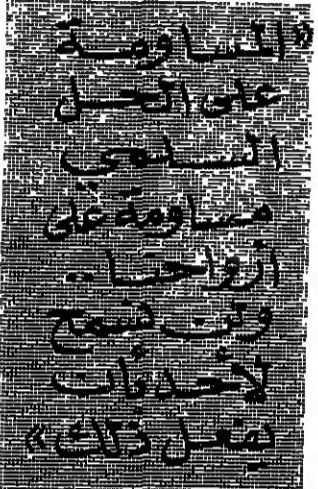 «المساومة
على الحل
السلمي
مساومة على
أرواحنا..
ولن نسمح
لأحد بأن
يفعل ذلك»